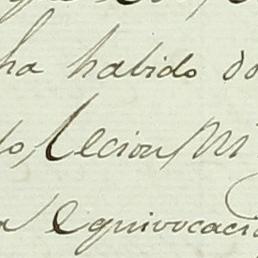 ha habido do
do, Lecion Mi
a Equivocaci